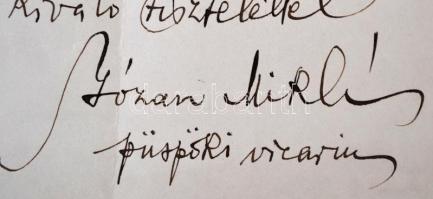 Kiváló tisztelettel
Józan Miklós
püspöki vicarius